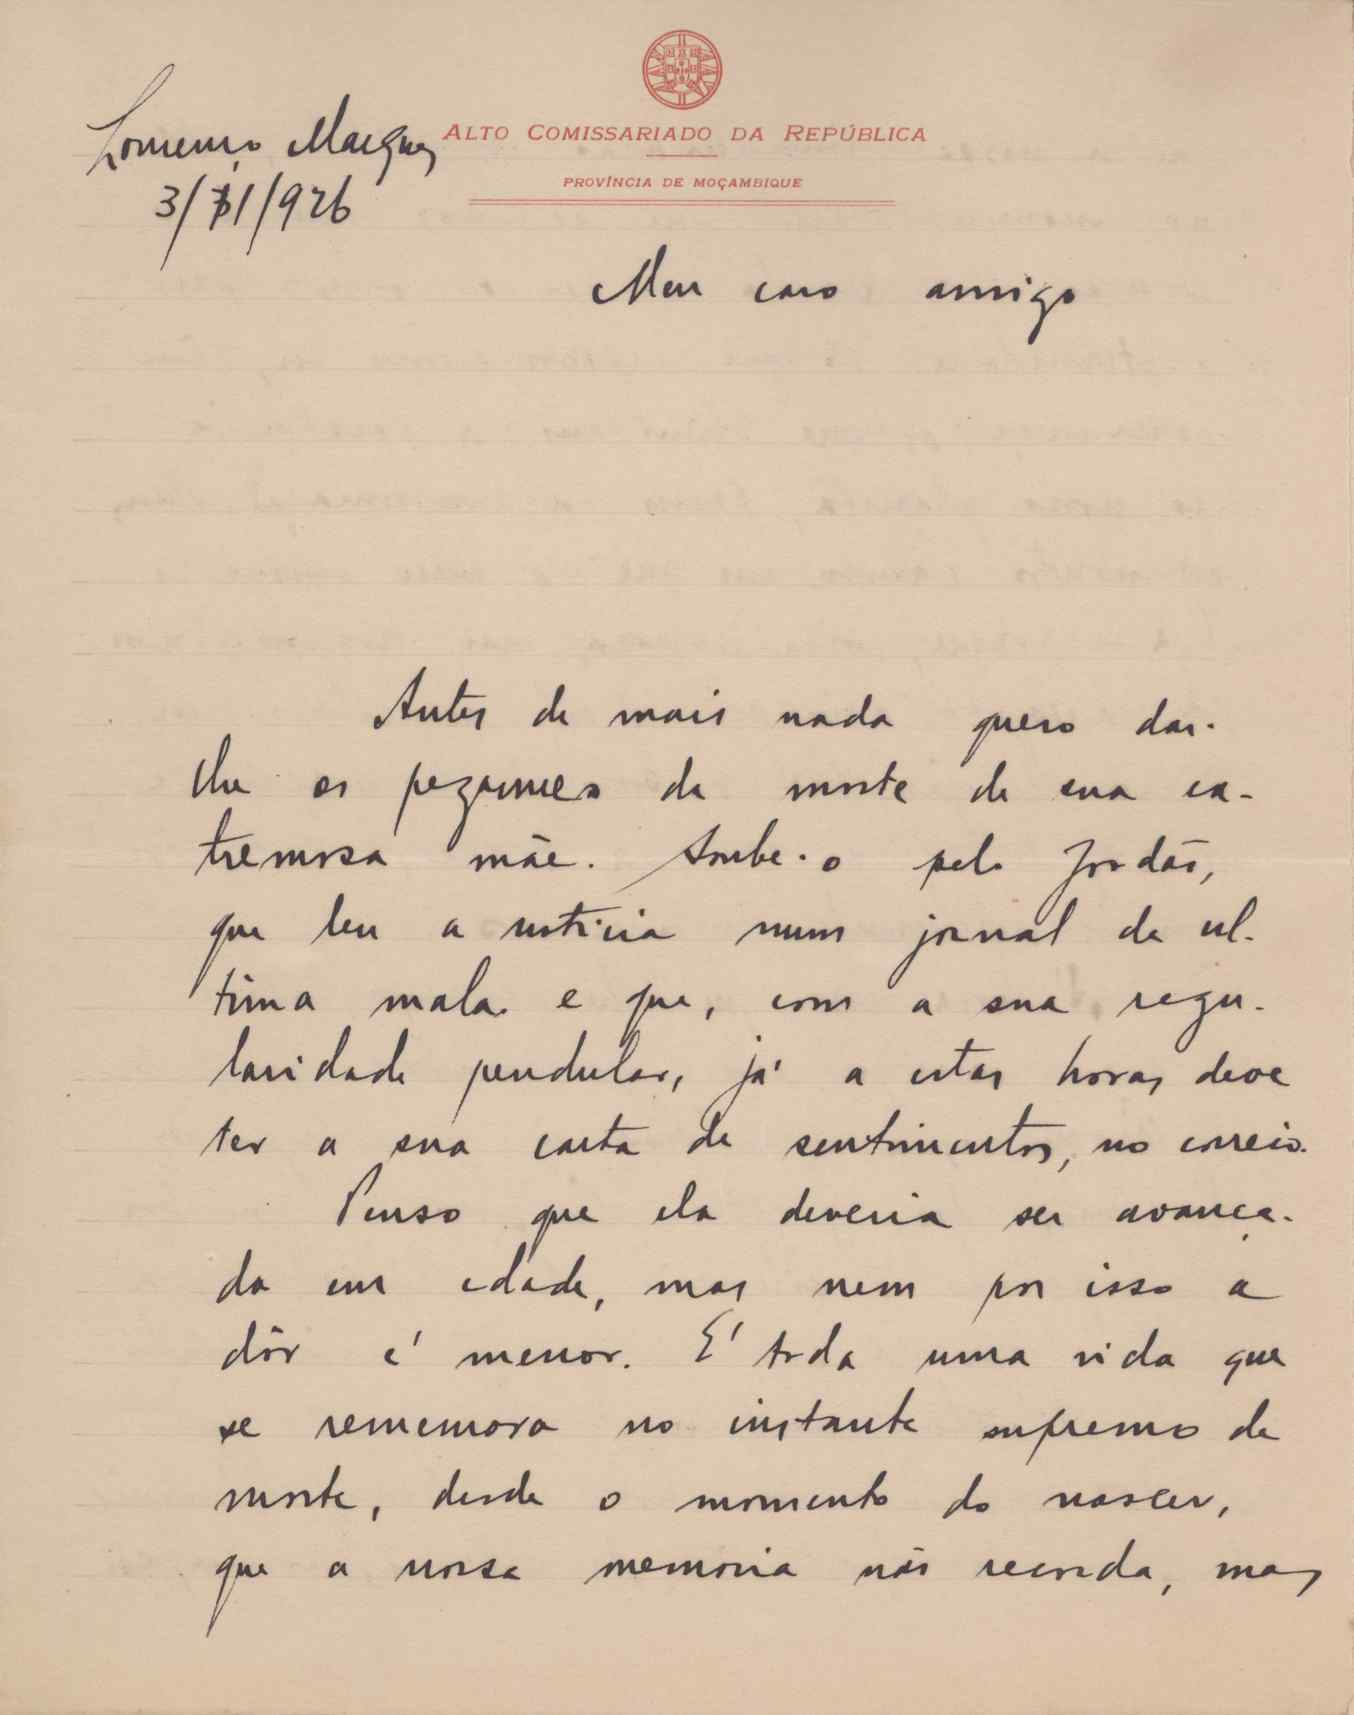 ALTO COMISSARIADO DA REPÚBLICA
PROVÍNCIA DE MOÇAMBIQUE
Lourenço Marques
3/1/926
Meu caro amigo
Antes de mais nada quero dar-
lhe os pezames da morte de sua ex-
tremosa mãe. Soube-o pelo Jordão,
que leu a noticia num jornal da ul-
tima mala e que, com a sua regu-
laridade pendular, já a estas horas deve
ter a sua carta de sentimentos, no correio.
Penso que ela deveria ser avança-
da em edade, mas nem por isso a
dôr é menor. É toda uma vida que
se rememora no instante supremo da
morte, desde o momento do nascer,
que a nossa memoria não recorda, mas